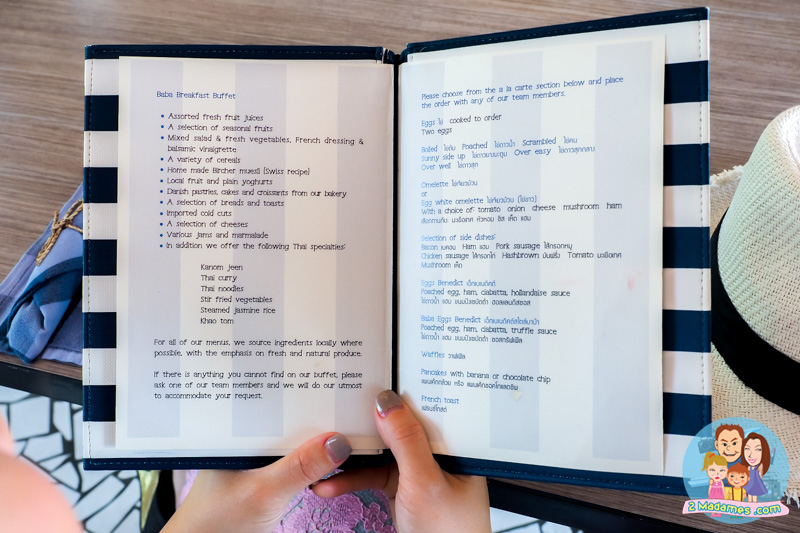 Baba Breakfast Buffet
• Assorted fresh fruit juices
• A selection of seasonal fruits
• Mixed salad & fresh vegetables, French dressing &
balsamic vinaigrette
• A variety of cereals
• Home made Bircher muesli (Swiss recipe)
• Local fruit and plain yoghurts
• Danish pastries, cakes and croissants from our bakery
• A selection of breads and toasts
• Imported cold cuts
• A selection of cheeses
• Various jams and marmalade
• In addition we offer the following Thai specialties:
Kanom jeen
Thai curry
Thai noodles
Stir fried vegetables
Steamed jasmine rice
Khao tom
For all of our menus, we source ingredients locally where
possible, with the emphasis on fresh and natural produce.
If there is anything you cannot find on our buffet, please
ask one of our team members and we will do our utmost
to accommodate your request.
Please choose from the a la carte section below and place
the order with any of our team members.
Eggs ไข่ cooked to order
Two eggs
Boiled ไข่ต้ม Poached ไข่ดาวน้ำ Scrambled ไข่คน
Sunny side up Over easy
Over well ไข่ดาวสุก
Omelette ไข่เจียวม้วน
or
Egg white omelette ไข่เจียวม้วน (ไข่ขาว)
With a choice of: tomato onion cheese mushroom ham
มะเขือเทศ หัวหอม ชีส เห็ด แฮม
Selection of side dishes:
Bacon เบคอน Ham แฮม Pork sausage ไส้กรอกหมู
Chicken sausage ไส้กรอกไก่ Hashbrown มันฝรั่ง Tomato มะเขือเทศ
Mushroom เห็ด
Eggs Benedict เอ็กเบเนดิกต์
Poached egg, ham, ciabatta, hollandaise sauce
ไข่ดาวน้ำ แฮม ขนมปังเชียบัตต้า
Baba Eggs Benedict
Poached egg, ham, ciabatta, truffle sauce
ไข่ดาวน้ำ แฮม ขนมปังเชียบัตต้า
Waffles วาฟเฟิล
Pancakes with banana or chocolate chip
แพนเค้กกล้วย หรือ แพนเค้กช็อคโกแลตชิพ
French toast
เฟรนช์โทสต์
2 Madames .com